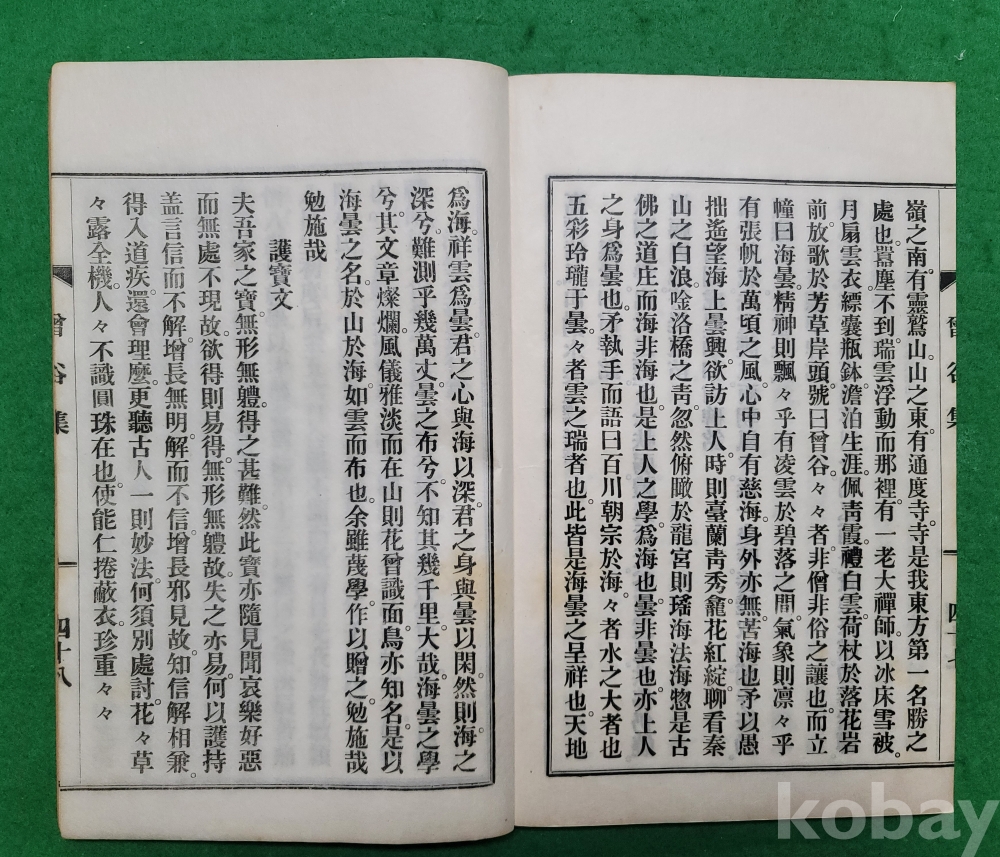 嶺之南。有靈鷲山。山之東。有通度寺。寺是我東方第一名勝之
處也。囂塵不到。瑞雲浮動。而那裡有一老大禪師。以冰床雪被。
月扇雲衣。縹囊瓶鉢。澹泊生涯。佩靑霞。禮白雲。荷杖於落花岩
前。放歌於芳草岸頭。號曰曾谷。々々者。非僧非俗之讓也。而立
幢曰海曇。精神則飄々乎有凌雲於碧落之間。氣象則凛々乎
有張帆於萬頃之風。心中自有慈海。身外亦無苦海也。予以愚
拙。遙望海上曇興。欲訪上人。時則臺蘭靑秀。龕花紅綻。聊看秦
山之白浪。唫洛橋之靑。忽然俯瞰於龍宮。則瑤海法海。惣是古
佛之道庄。而海非海也。是上人之學爲海也。曇非曇也。亦上人
之身爲曇也。予執手而語曰百川朝宗於海。々者水之大者也
五彩玲瓏于曇。々者雲之瑞者也。此皆是海曇之呈祥也。天地
曾谷集
四十七
爲海。祥雲爲曇。君之心與海以深。君之身與曇以閑。然則海之
深兮。難測乎幾萬丈。曇之布兮。不知其幾千里。大哉。海曇之學
兮。其文章燦爛。風儀雅淡。而在山則花曾識面。鳥亦知名。是以
海曇之名。於山於海。如雲而布也。余雖蔑學。作以贈之。勉施哉
勉施哉
護寶文
夫吾家之寶。無形無軆。得之甚難。然此寶亦隨見聞哀樂好惡
而無處不現。故欲得則易得。無形無軆。故失之亦易。何以護持
盖言信而不解。增長無明。解而不信。增長邪見。故知信解相兼。
得入道疾。還會理麽。更聽古人一則妙法。何須別處討。花々草
々露全機。人々不識圓珠在也。使能仁捲蔽衣。珍重々々
曾谷集
四十八
kobay